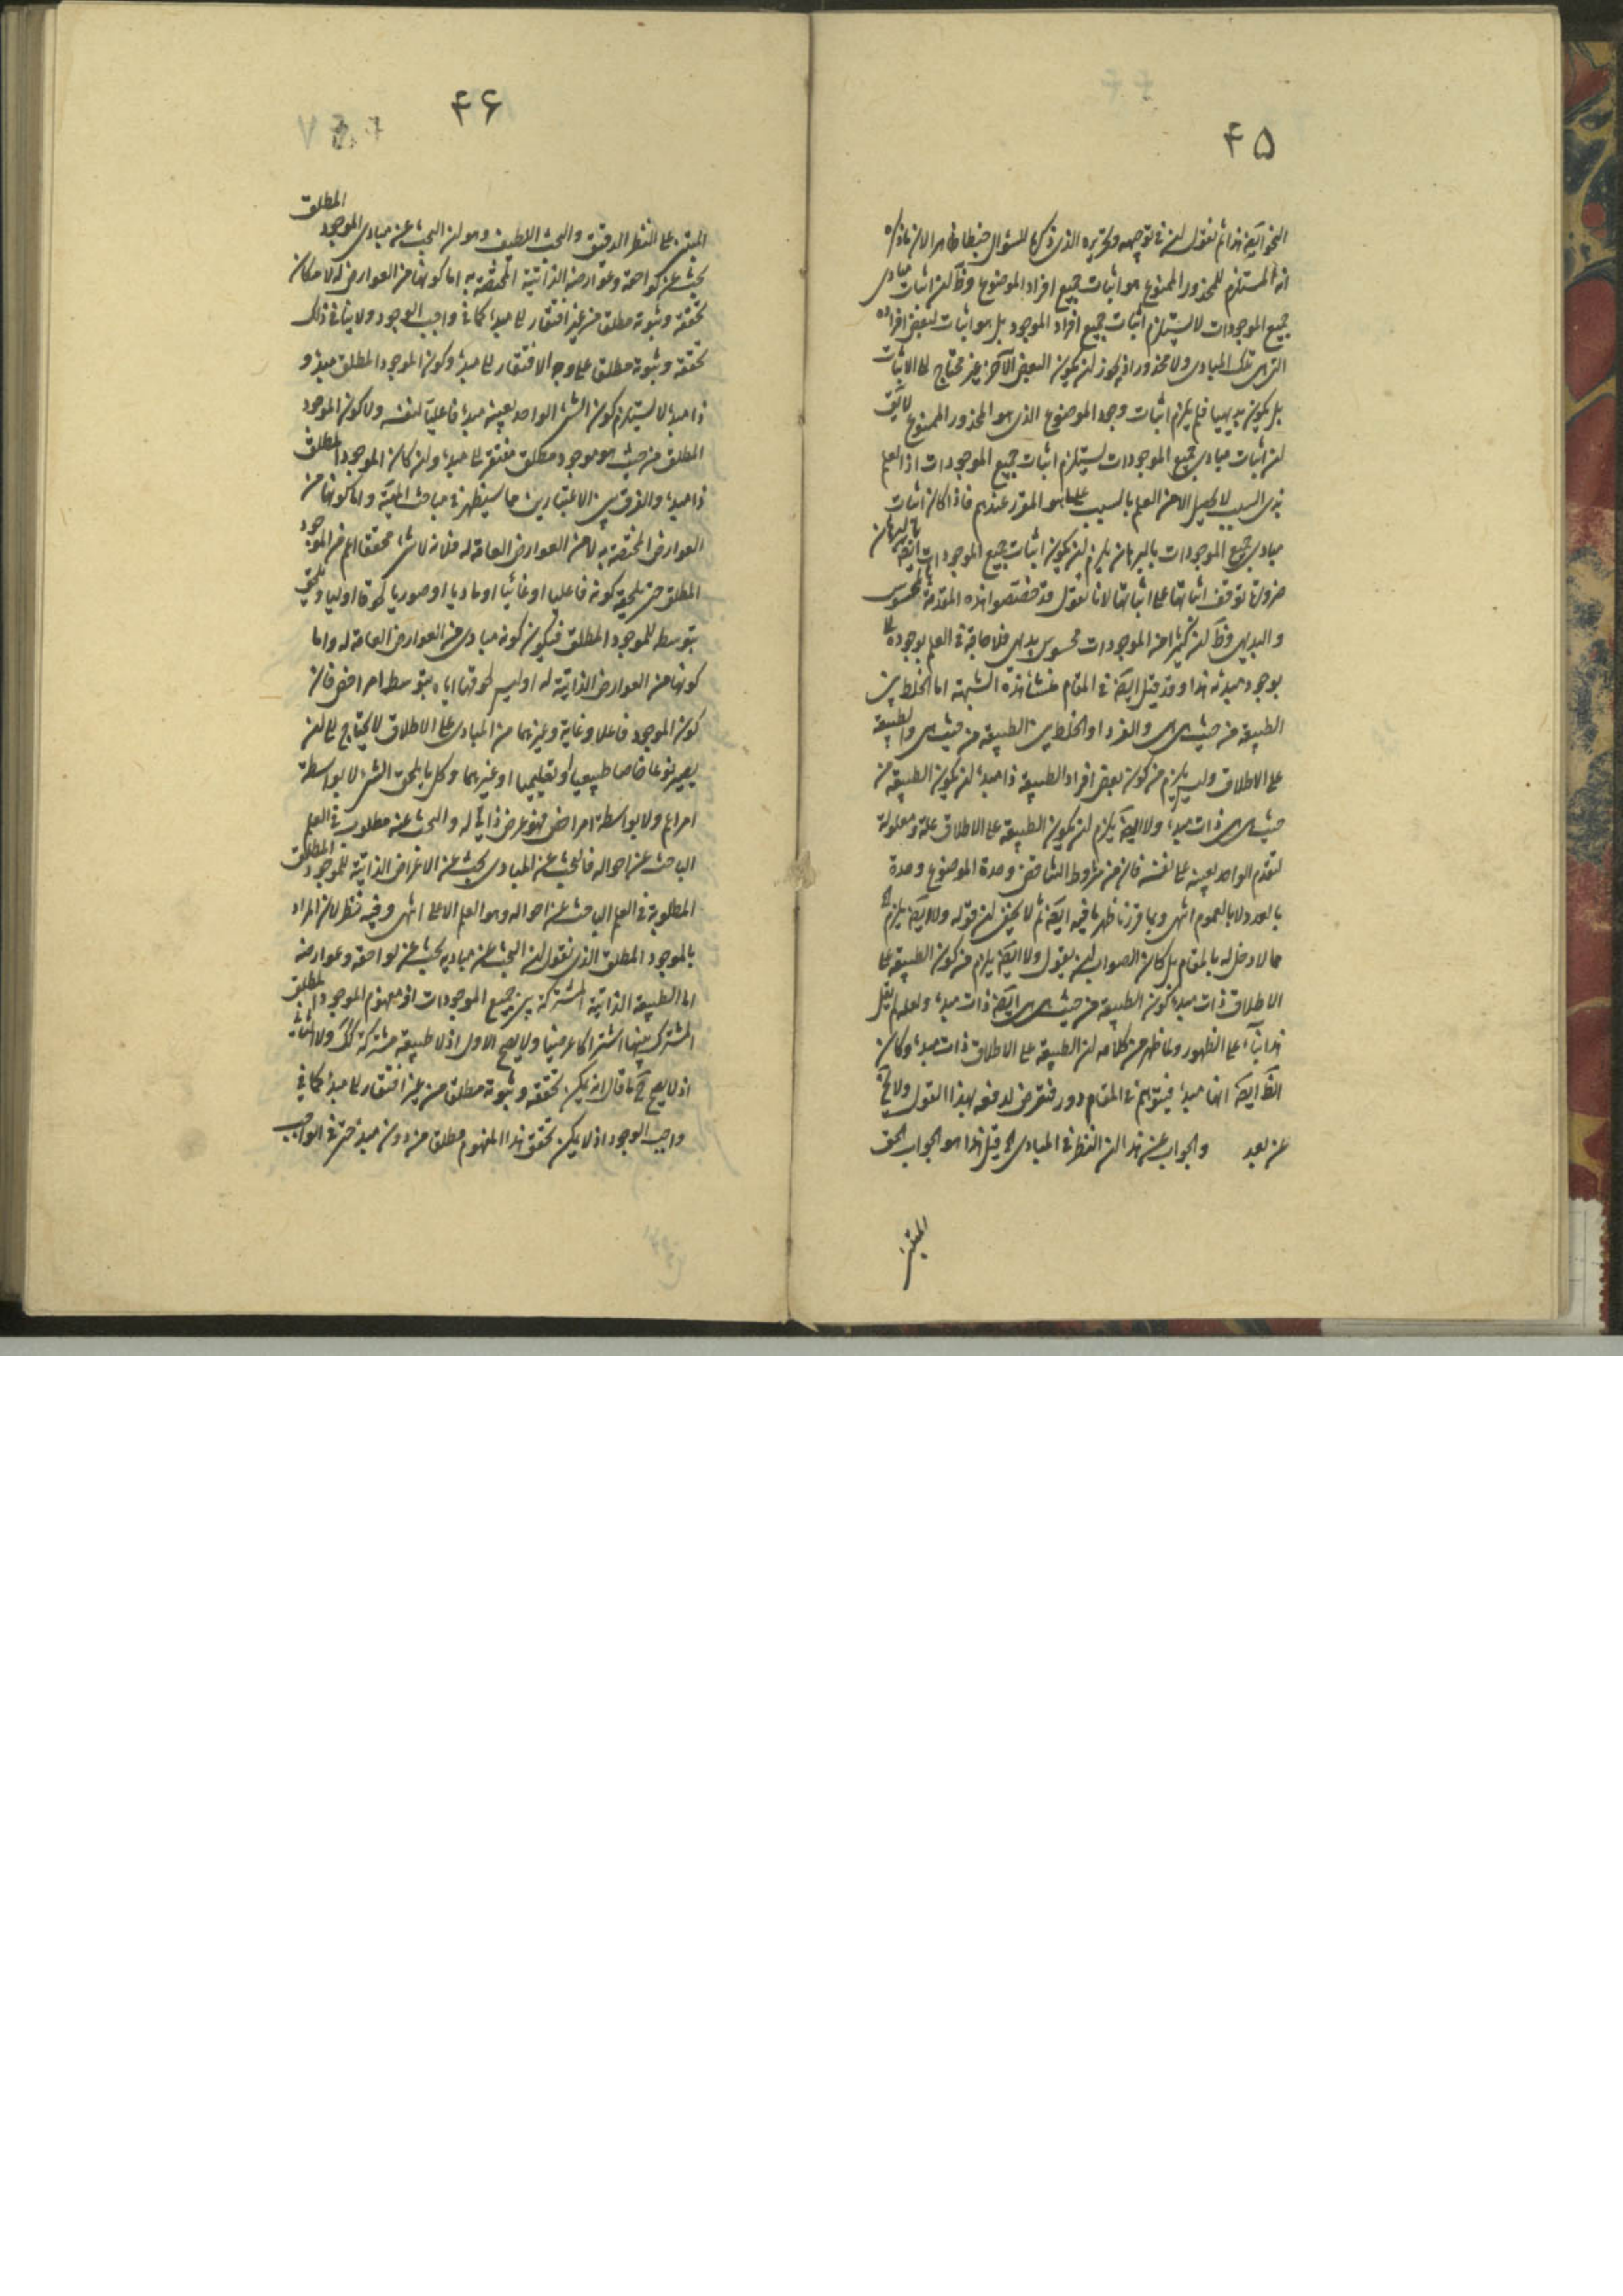 ۴۵
النحو ايضا هذا ثم نقول ان فی توجيهه وتحريره الذی ذكرنا للسؤال خبطا ظاهرا لان ما ذكره
انه المستلزم للمحذور الممنوع هو اثبات جميع افراد الموضوع وظ ان اثبات مبادی
جميع الموجودات لا يستلزم اثبات جميع افراد الموجود بل هو اثبات لبعض افراده
التی هی تلك المبادی ولا محذور اذ يجوز ان يكون البعض الآخر غير محتاج الی الاثبات
بل يكون بديهيا فلم يلزم اثبات وجود الموضوع الذی هو المحذور الممنوع لا يق
ان اثبات مبادی جميع الموجودات يستلزم اثبات جميع الموجودات اذ العلم
بذی السبب لا يحصل الا من العلم بالسبب علی ما هو المقرر عندهم فاذا كان اثبات
مبادی جميع الموجودات بالبرهان يلزم ان يكون اثبات جميع الموجودات ايضا بالبرهان
ضرورة توقف اثباتها علی اثباتها لانا نقول قد خصصوا هذه المقدمة بغير المحسوس
والبديهی وظ ان كثيرا من الموجودات محسوس بديهی فلا حاجة فی العلم بوجوده الی
بوجود مبدئه هذا وقد قيل ايضا فی المقام منشأ هذه الشبهة اما الخلط بين
الطبيعة من حيث هی هی والفرد او الخلط بين الطبيعة من حيث هی والطبيعة
علی الاطلاق وليس يلزم من كون بعض افراد الطبيعة ذا مبدء ان يكون الطبيعة من
حيث هی هی ذات مبدء ولا ايضا يلزم ان يكون الطبيعة علی الاطلاق علة ومعلولة
لتقدم الواحد بعينه علی نفسه فان من شروط التناقض وحدة الموضوع وحدة
بالعدد لا بالعموم انتهی وبما قررنا ظهر ما فيه ايضا ثم لا يخفی ان قوله ولا ايضا يلزم الخ
مما لا دخل له بالمقام بل كان الصواب ان يقول ولا ايضا يلزم من كون الطبيعة علی
الاطلاق ذات مبدء كون الطبيعة من حيث هی هی ايضا ذات مبدء ولعله لم يقل
هذا بناء علی الظهور ولما ظهر من كلامه ان الطبيعة علی الاطلاق ذات مبدء وكان
الظ ايضا انها مبدء فيتوهم فی المقام دور فتعرض لدفعه بهذا القول ولا يخ
عن بعد والجواب عن هذا ان النظر فی المبادی الخ قيل هذا هو الجواب الحق
المبتنی
۴۶
المبتنی علی النظر الدقيق والبحث اللطيف وهو ان البحث عن مبادی الموجود المطلق
بحث عن لواحقه وعوارضه الذاتية المختصة به اما كونها من العوارض له لامكان
تحققه وثبوته مطلقا من غير افتقار الی مبدء كما فی واجب الوجود ولا ينافی ذلك
تحققه وثبوته مطلقا علی وجه الافتقار الی مبدء وكون الموجود المطلق مبدء و
ذا مبدء لا يستلزم كون الشئ الواحد بعينه مبدء فاعليا لنفسه ولا كون الموجود
المطلق من حيث هو موجود مطلق مفتقرا الی مبدء وان كان الموجود المطلق
ذا مبدء والفرق بين الاعتبارين مما سيظهر فی مباحث المهية واما كونها من
العوارض المختصة به لا من العوارض العامة له فلانه لا شئ محققا اعم من الموجود
المطلق حتی يلحقه كونه فاعليا او غائيا او ماديا او صوريا لحوقا اوليا ويلحق
بتوسطه للموجود المطلق فيكون كونه مبادی من العوارض العامة له واما
كونها من العوارض الذاتية له اوليس لحوقها اياه بتوسط امر اخص فان
كون الموجود فاعلا وغاية وغيرهما من المبادی علی الاطلاق لا يحتاج الی ان
يصير نوعا خاصا طبيعيا او تعليميا او غيرهما وكل ما يلحق الشئ لا بواسطة
امر اعم ولا بواسطة امر اخص فهو عرض ذاتی له والبحث عنه مطلوب فی العلم
الباحث عن احواله فالبحث عن المبادی بحث عن الاعراض الذاتية للموجود المطلق
المطلوبة فی العلم الباحث عن احواله وهو العلم الاعلی انتهی وفيه نظر لان المراد
بالموجود المطلق الذی نقول ان البحث عن مباديه بحث عن لواحقه وعوارضه
اما الطبيعة الذاتية المشتركة بين جميع الموجودات او مفهوم الموجود المطلق
المشترك بينها اشتراكا عرضيا ولا يصح الاول اذ لا طبيعة مشتركة كك ولا الثانی
اذ لا يصح ح ما قال انه يمكن تحققه وثبوته مطلقا من غير افتقار الی مبدء كما فی
واجب الوجود اذ لا يمكن تحقق هذا المفهوم مطلقا من دون مبدء حتی فی الواجب